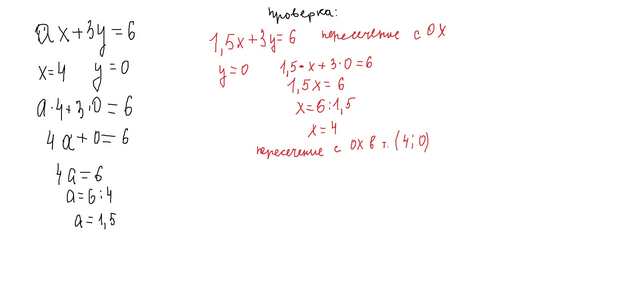 ax+3y=6
x=4 y=0
a·4+3·0=6
4a+0=6
4a=6
a=6:4
a=1,5
проверка:
1,5x+3y=6 пересечение с OX
y=0 1,5·x+3·0=6
1,5x=6
x=6:1,5
x=4
пересечение с OX в т. (4;0)